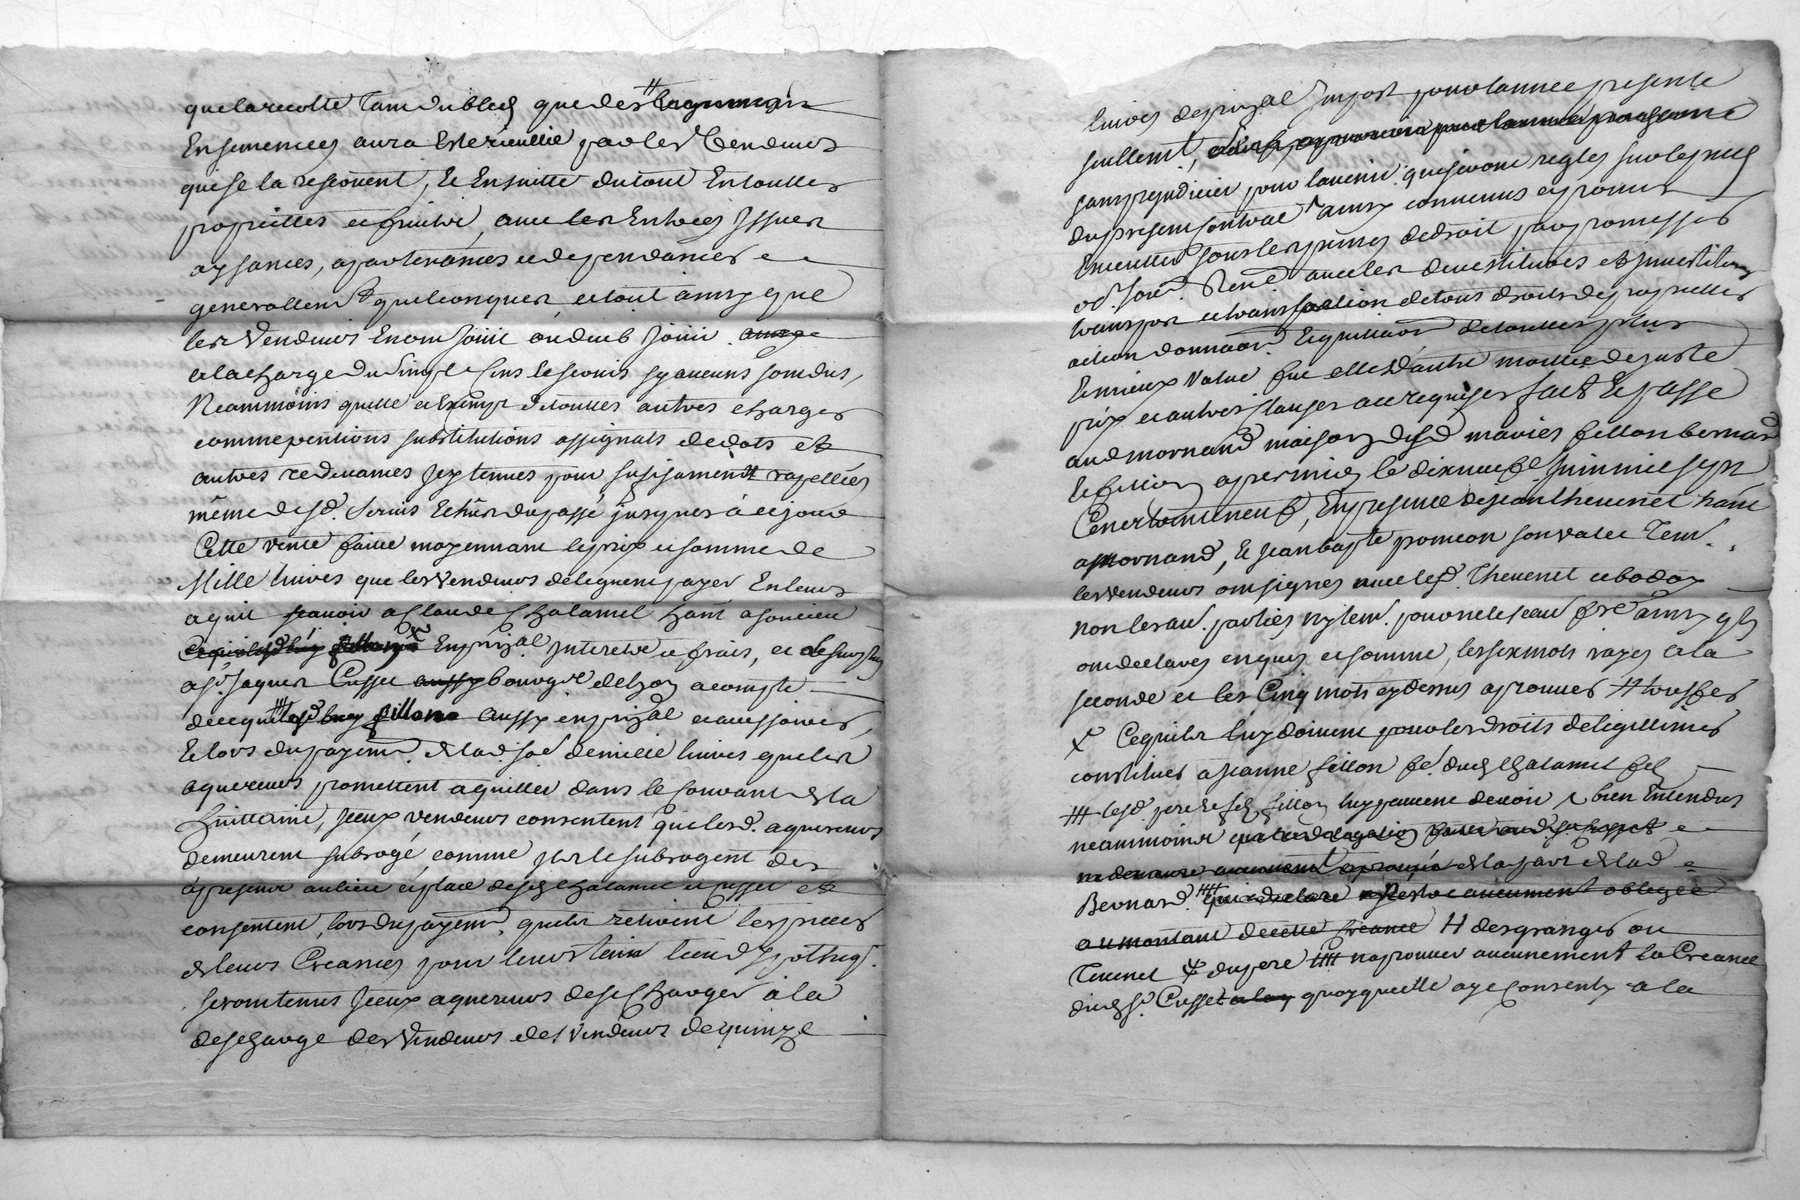 que la recolte tant du bled que des
Ensemences aura Este recuellie par les Vendeurs
qui se la reservent, Et Ensuitte du tout En touttes
proprietes et fruits, avec les Entrees Issues
aysances, apartenances et dependances
generallemt quelconques et tout ainsy que
les Vendeurs En ont Jouit ou deub Jouir
a la charge du simple Cens les servis sy aucuns sont dus,
Neammoins quitte et Exempt de touttes autres charges
comme pentions substitutions assignats de dots et
autres redevances sy tenues pour sufisament rapellées
même desd. servis Echus du passé jusques à ce jour
Cette vente faitte moyennant le prix et somme de
Mille livres que les Vendeurs deleguent payer En leurs
aquit scavoir a Claude Chalamel hant a Soucieu
En prizal Interets et frais, et le surplus
a Sr Jaques Cusset bourgs de Lyon a compte
de ce qui aussy en prizal et accessoires,
Et lors du payemt de lad. so. de mille livres que les
aquereurs promettent aquitter dans le courant de la
huittaine, Iceux vendeurs consentent que lesd. aquereurs
demeurent subrogé, comme Ils les subrogent des
apresent au lieu et place desd. Chalamel et Cusset et
consentent, lors du payemt, qu'ils retirent les pieces
de leurs Creances pour leurs tenir lieu d'hypotheq.
seront tenus Iceux aquereurs de se charger à la
descharge des Vendeurs de quinze
livres de prizal Impost pour l'annee presente
seullemt,
sans prejudicier pour l'avenir qui seront regles sur le pied
du present contrat ainsy convenus et promis
Executter sous les peines de droit par promesses
ob. soum. Renon. avec les devestitures et Investitures
transport et translation de tous droits de proprietes
action donnaon Et quittaon de touttes plus
Et mieux Value fut elle d'autre moitié de juste
prix et autres clauses a ce requises fait Et passé
aud mornand maison desd mariés fillon bernard
Et fillion apres midy le dixneufe Juin mil sept
Cent trente neuf, En presence de jean thevenet hant
a Mornand, Et Jean bapte poncon son valet Tem.
les vendeurs ont signes avec led. Thevenet et bodoy
non les au. parties ny tem. pour ne le scavoir fre ainsy qls
ont declares enquis et sommes, les six mots rayes a la
seconde et les Cinq mots cy dessus aprouves
Ce qu'ils luy doivent pour les droits de legittimes
constitues a jeanne fillon fe. dud Chalamel
lesd. pere et fils fillon luy peuvent devoir bien Entendus
neammoins
de la part de lad
Bernard.
au montant de cette creance H des granges ou
Tevenet du pere n'aprouver aucunement la Creance
dud Sr. Cusset quoyquelle aye consenty a la